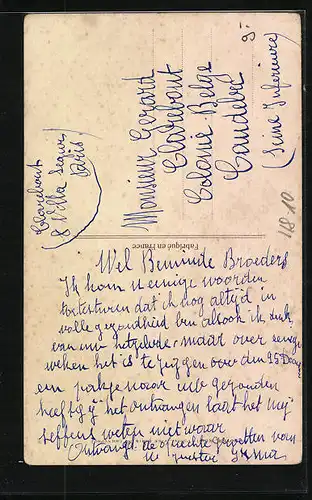 Monsieur Gerard
Clarebout
Colonie Belge
Caudebec
(Seine Inferieure)
Clarebout
(8 Villa Segur
Paris)
Fabriqué en France
Wel Beminde Broeders
Ik kom u eenige woorden
dat ik nog altyd in
volle gezondheid ben alsook ik
van u het maar over eenige
weken het is te zeggen over den 25 Dec
een pakje naar ulb gezonden
heeft gy het ontvangen laat het my
seffens weten niet waar
Ontvangt de oprechte groetten van
u zuster Irma
18 10